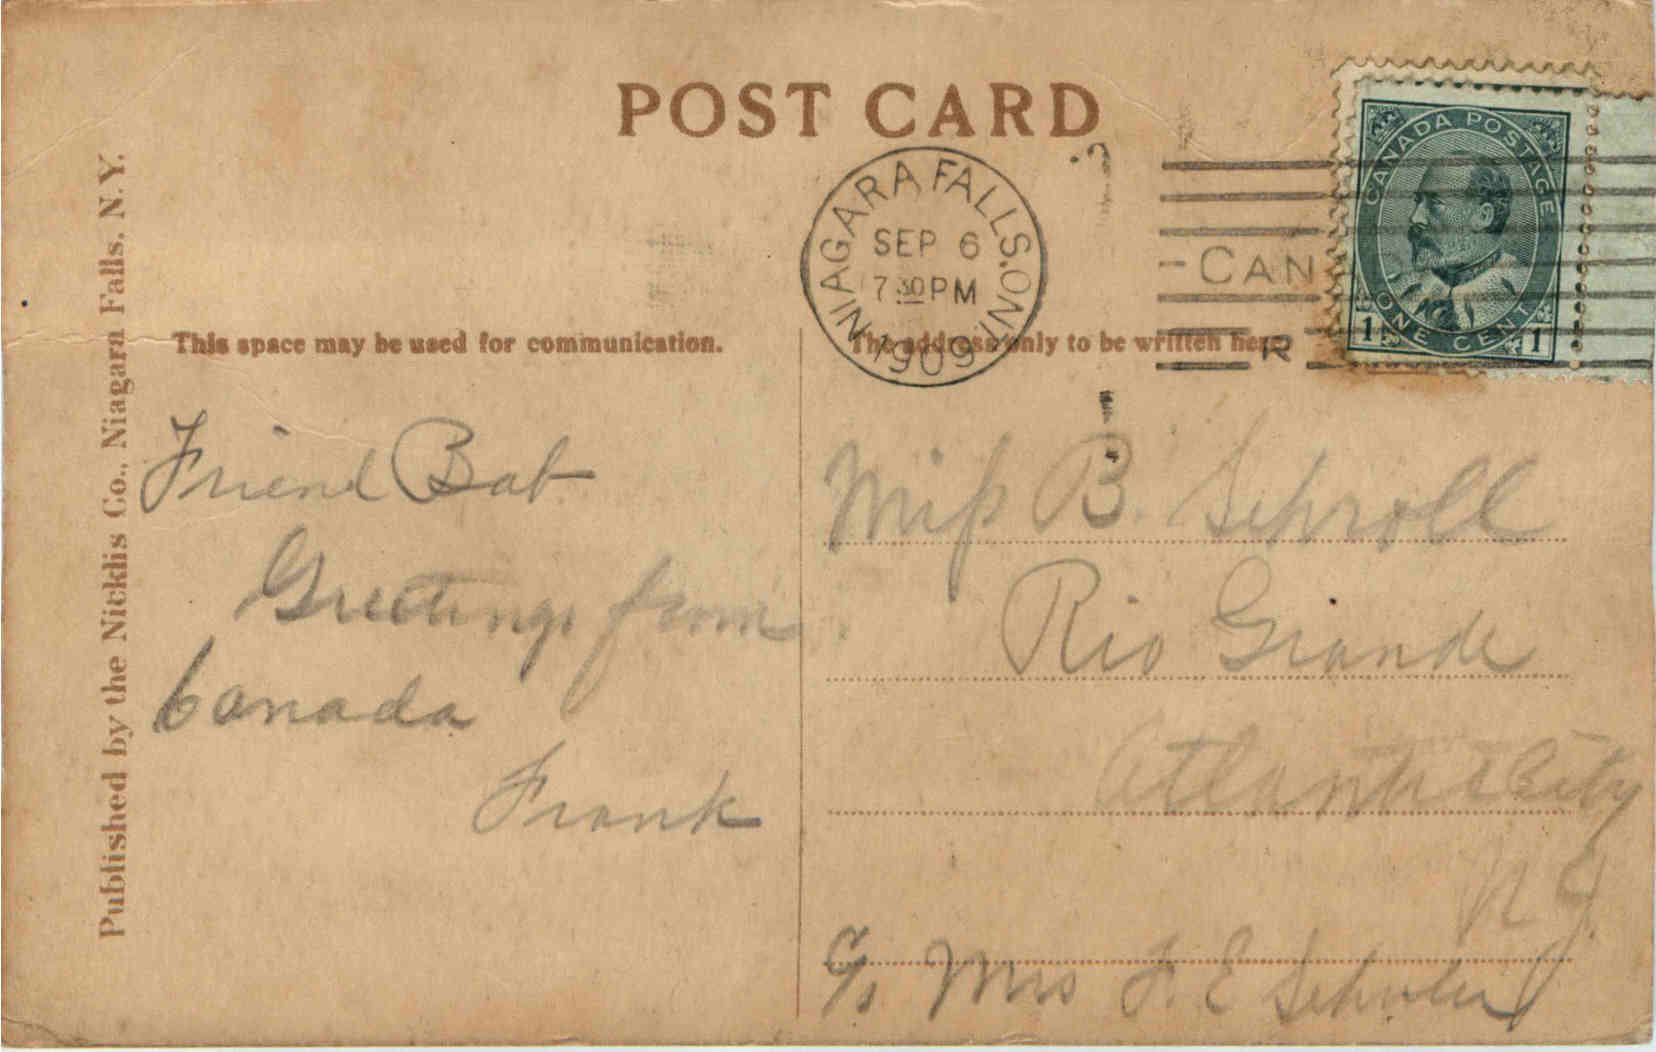 POST CARD
CANADA POSTAGE
ONE CENT
1 1
NIAGARA FALLS. ONT.
SEP 6
7 30 PM
1909
CAN
R
Published by the Nicklis Co., Niagara Falls, N. Y.
This space may be used for communication.
The address only to be written here.
Friend Bab
Greetings from
Canada
Frank
Miss B. Schroll
Rio Grande
Atlantic City
N J.
c/o Mrs J. E Schuler